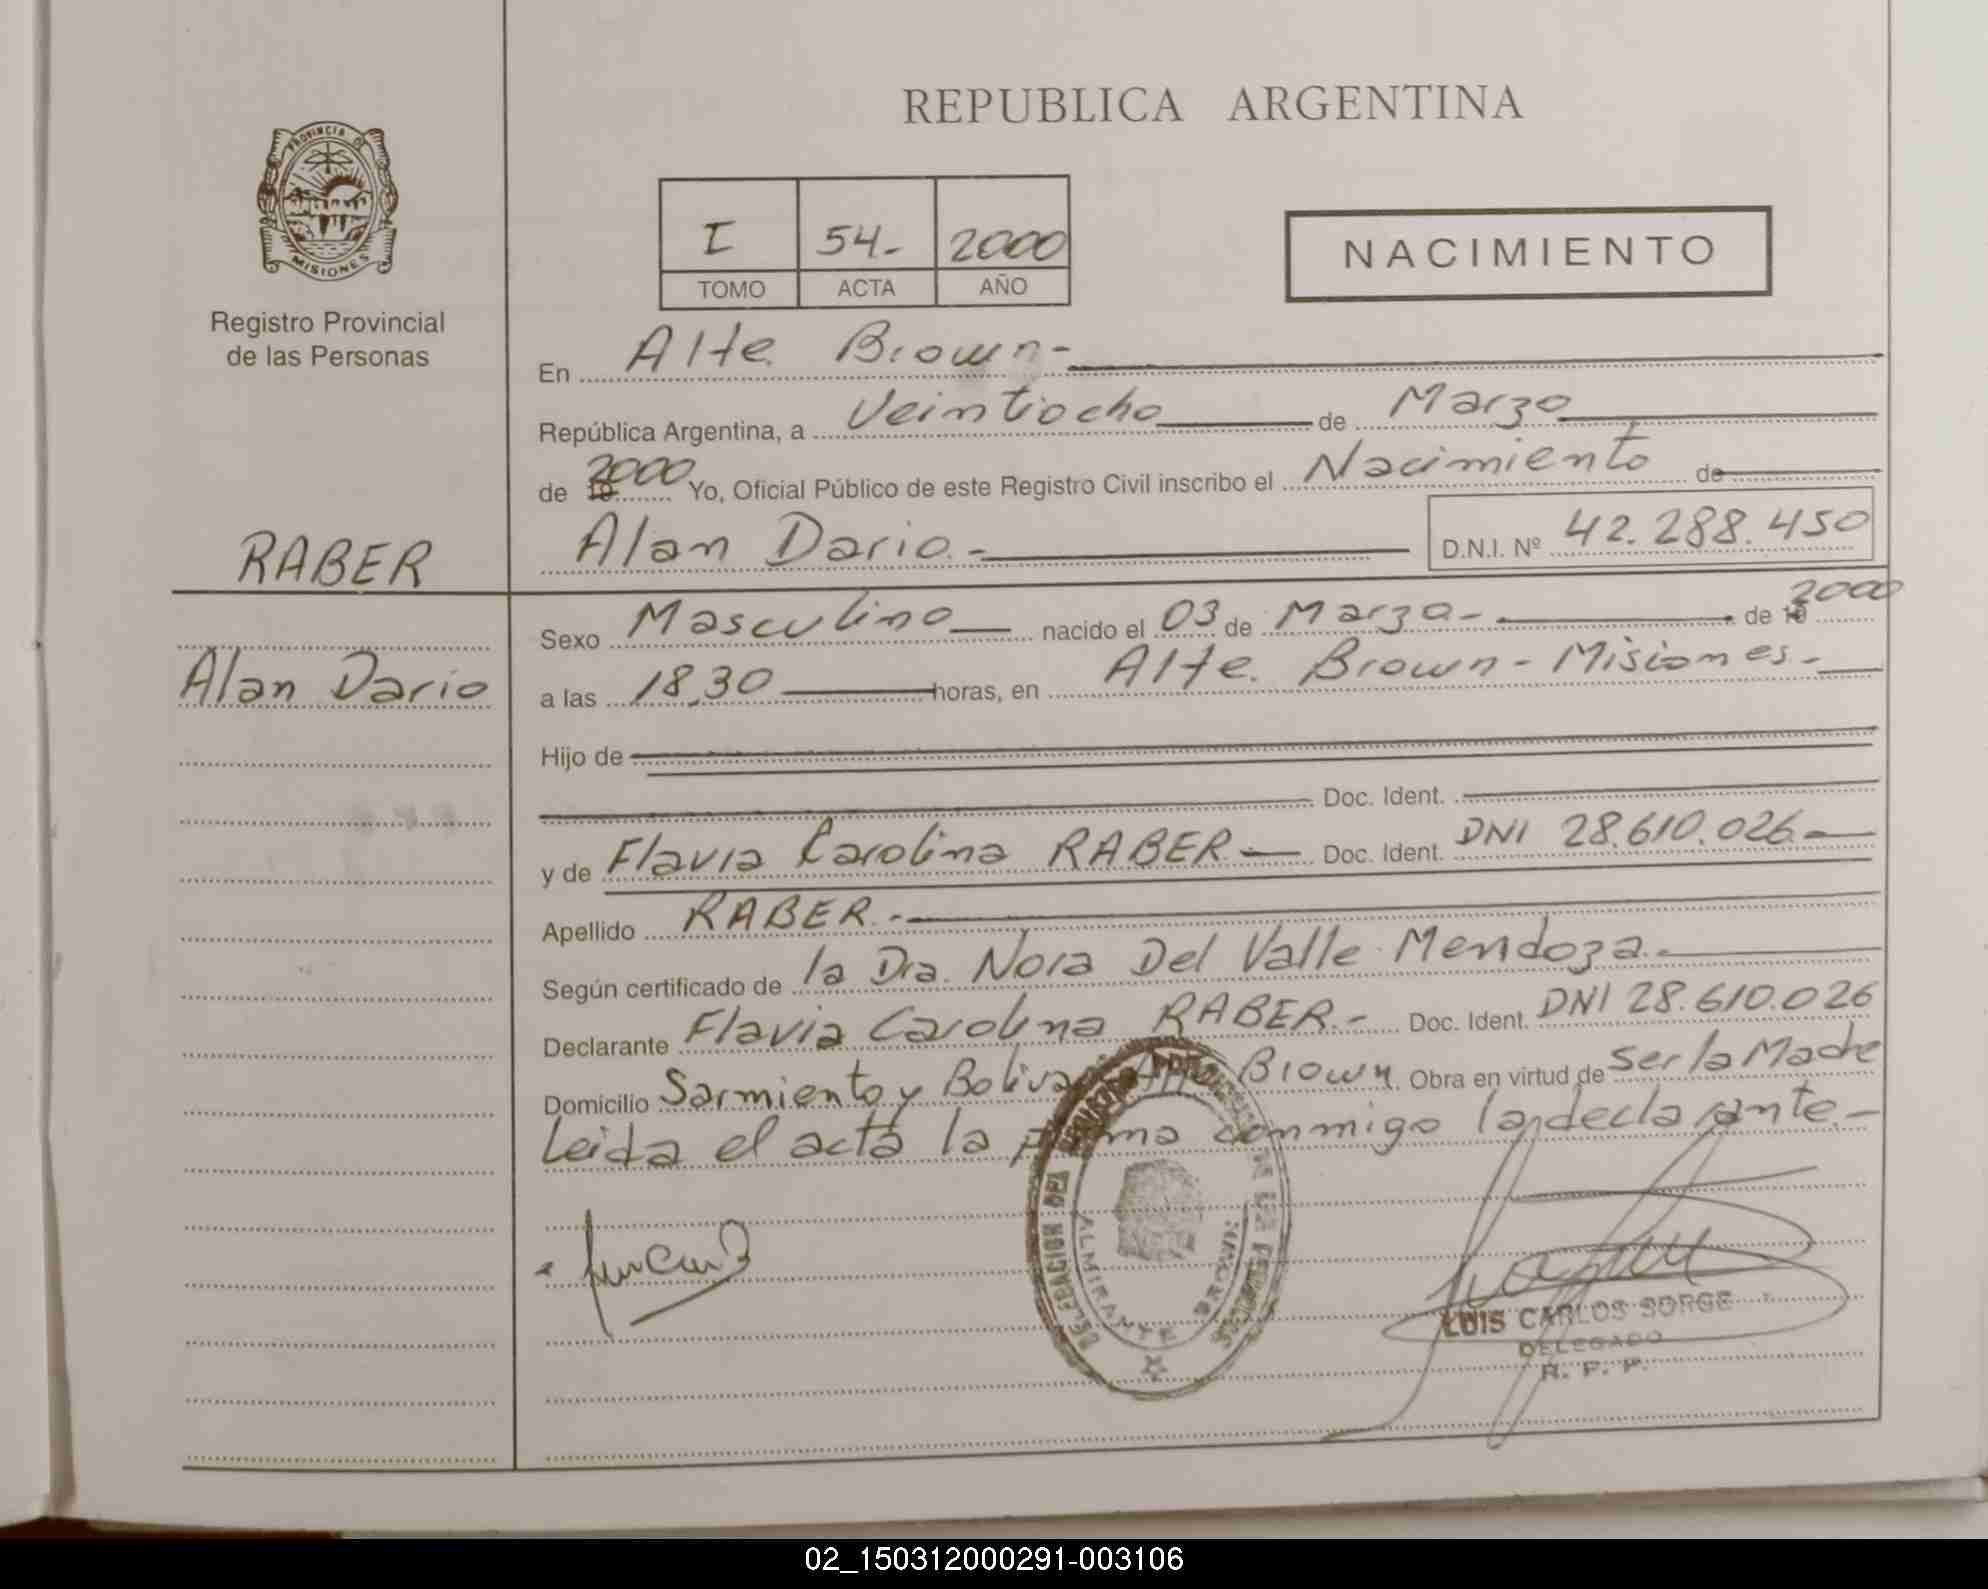 REPUBLICA ARGENTINA
PROVINCIA DE
MISIONES
Registro Provincial
de las Personas
I 54- 2000
TOMO ACTA AÑO
NACIMIENTO
En Alte. Brown-
República Argentina, a Veintiocho de Marzo
de 2000 Yo, Oficial Público de este Registro Civil inscribo el Nacimiento de
RABER
Alan Dario.- D.N.I. Nº 42.288.450
Sexo Masculino nacido el 03 de Marzo- de 2000
Alan Dario
a las 18,30 horas, en Alte. Brown - Misiones.-
Hijo de
Doc. Ident.
y de Flavia Carolina RABER Doc. Ident. DNI 28.610.026.-
Apellido RABER.-
Según certificado de la Dra. Nora Del Valle Mendoza.-
Declarante Flavia Carolina RABER.- Doc. Ident. DNI 28.610.026
Domicilio Sarmiento y Bolivar Alte Brown. Obra en virtud de Ser la Madre
Leida el acta la firma conmigo la declarante.-
DELEGACION DEL
ALMIRANTE BROWN
LUIS CARLOS SORGE
DELEGADO
R. P. P.
02_150312000291-003106